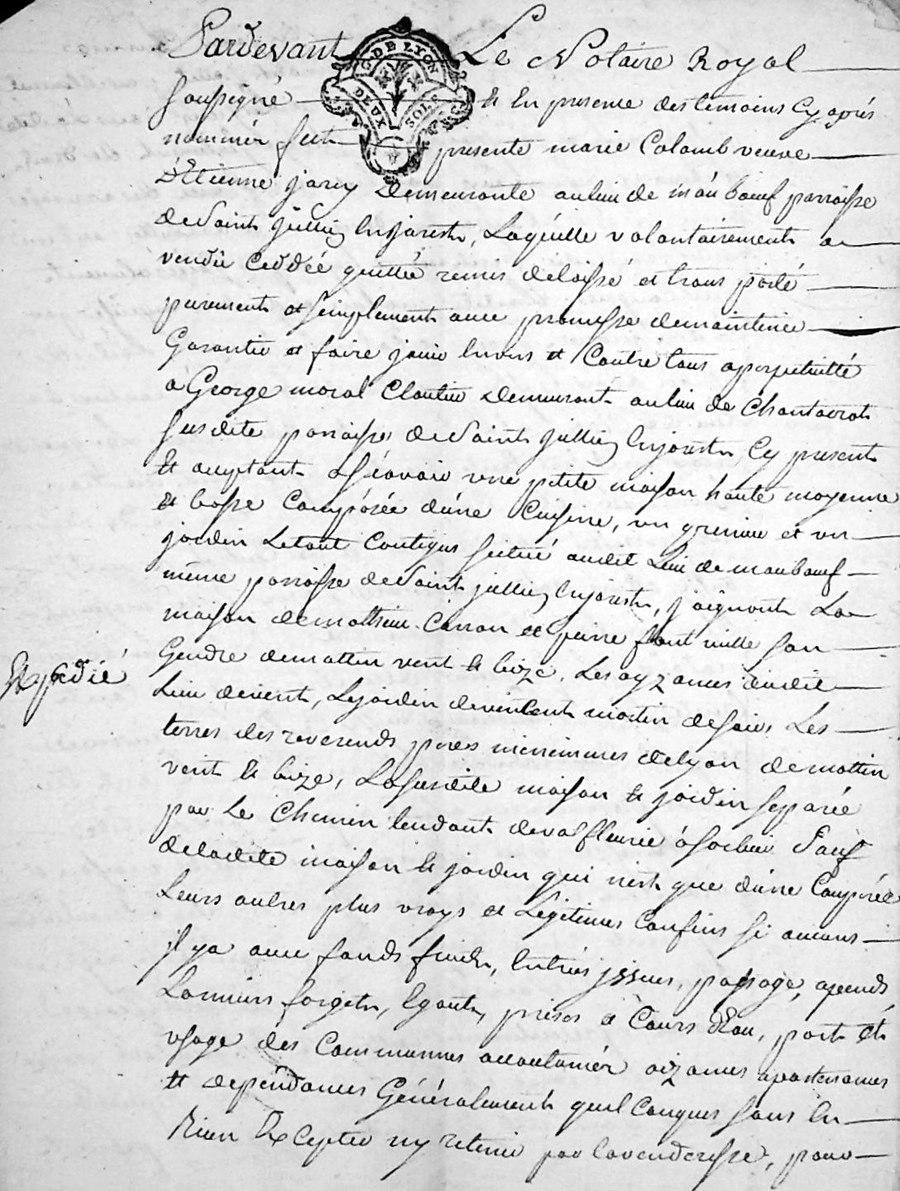 Pardevant Le Notaire Royal
G. DE LYON
DEUX SOLS
soussigné & En presence des temoins Cy aprés
nommés fut presente marie Colomb veuve
D'Etienne jarey Demeurante au lieu de maubœuf parroisse
de Saint jullien Enjarest, Laquelle volontairement a
vendu Ceddée quittée remis delaissé et trans porté
purement et simplement avec promesse de maintenir
Garantir et faire jouir Envers et Contre tous a perpetuitté
a George moral Cloutier Demeurant au lieu de Chantacrot
susdite parroisse de Saint jullien Enjarest, Cy present
& acceptant Sçéavoir une petite maison haute moyenne
& basse Compósée d'une Cuisine, un grenier et un
jardin Letout Contigus situé audit Lieu de maubœuf
même parroisse de Saint jullien Enjarest, joignant La
maison de mathieu Carron et pierre son
Gendre de mattin vent & bize, Les ayzances dudit
Expedié
Lieu devent, Lejardin deventent mattin de soir, Les
terres des reverends peres minnimes de Lyon de mattin
vent & bize, Lasusdite maison & jardin sepparée
par Le Chemin tendant de valfleurie á sorbier Sauf
deladite maison & jardin qui n'est que d'une Coupée
Leurs autres plus vrays et Légitimes Confins si aucuns
jl y a avec fonds fruits, Entrées jssues, passage, apends
Larmiers forgets, Egouts, prises à Cours d'Eau, part &
usage des Communes accoutumés aizances apartenances
& dépéndances Générallement quelConques sans En
Rien Excepter ny retenir par lavenderesse, pour